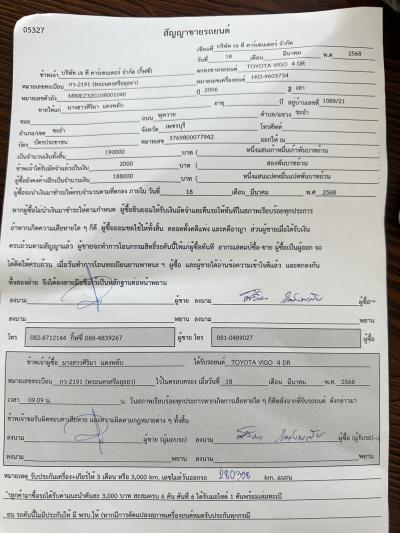 05327
สัญญาขายรถยนต์
เขียนที่ บริษัท เจ ที คาร์เซนเตอร์ จำกัด
วันที่ 18 มีนาคม พ.ศ 2568
ข้าพเจ้า บริษัท เจ ที คาร์เซนเตอร์ จำกัด (กิ๊ฟซี่) ตกลงขายรถยนต์ TOYOTA VIGO 4 DR
หมายเลขทะเบียน กว-2191 (พระนครศรีอยุธยา) หมายเลขเครื่องยนต์ 1KD-9603754
หมายเลขตัวถัง MR0EZ32G108001040 ปี 2006 สี เทา
ขายให้แก่ นางสาวศิริมา แดงพลับ อายุ ปี อยู่บ้านเลขที่ 1089/21
ซอย ถนน พุหวาย ตำบล/แขวง ชะอำ
อำเภอ/เขต ชะอำ จังหวัด เพชรบุรี โทรศัพท์
บัตร บัตรประชาชน หมายเลข 3769800077942 ออกให้ ณ
เป็นจำนวนเงินทั้งสิ้น 190000 บาท ( หนึ่งแสนเก้าหมื่นบาทถ้วน
ข้าพเจ้าได้รับมัดจำแล้วเป็นเงิน 2000 บาท ( สองพันบาทถ้วน
ผู้ซื้อยังคงค้างอีกเป็นจำนวนเงิน 188000 บาท ( หนึ่งแสนแปดหมื่นแปดพันบาทถ้วน
ผู้ซื้อจะนำเงินมาชำระให้ครบจำนวนตามที่ตกลง ภายใน วันที่ 18 เดือน มีนาคม พ.ศ 2568
หากผู้ซื้อไม่นำเงินมาชำระให้ตามกำหนด ผู้ซื้อยินยอมให้ริบเงินมัดจำและคืนรถให้ทันทีในสภาพเรียบร้อยทุกประการ
ถ้าหากเกิดความเสียหายใด ๆ ก็ดี ผู้ซื้อยอมชดใช้ให้ทั้งสิ้น ตลอดทั้งคดีแพ่ง และคดีอาญา ส่วนผู้ขายเมื่อได้รับเงิน
ครบถ้วนตามสัญญาแล้ว ผู้ขายจะทำการโอนกรรมสิทธิ์รถคันนี้ให้แก่ผู้ซื้อทันที
ได้คิดให้ครบถ้วน เมื่อวันทำการโอนทะเบียนยานพาหนะ ฯ ผู้ซื้อ และผู้ขายได้อ่านข้อความเข้าใจดีแล้ว และตกลงกัน
ทั้งสองฝ่าย จึงได้ลงลายมือชื่อไว้เป็นหลักฐานต่อหน้าพยาน
ลงนาม ผู้ขาย ลงนาม ศิริมา ผู้ซื้อ
ลงนาม พยาน ลงนาม พยาน
โทร 082-8712144 กิ๊ฟซี่ 088-4839267 ผู้ขาย โทร 081-0489027 ผู้ซื้อ
ข้าพเจ้าผู้ซื้อ นางสาวศิริมา แดงพลับ ได้รับรถยนต์ TOYOTA VIGO 4 DR
หมายเลขทะเบียน กว-2191 (พระนครศรีอยุธยา) ไว้ในครอบครอง เมื่อวันที่ 18 เดือน มีนาคม พ.ศ. 2568
เวลา 09.09 น. ในสภาพเรียบร้อยทุกประการหากเกิดการเสียหายใด ๆ ก็ดีหลังจากที่รับรถยนต์ ดังกล่าวมา
ข้าพเจ้าขอรับผิดชอบค่าเสียหาย และความผิดตามกฎหมายต่าง ๆ ทั้งสิ้น
ลงนาม ผู้ขาย (ผู้มอบรถ) ลงนาม ศิริมา ผู้ซื้อ (ผู้รับรถ)
ลงนาม พยาน ลงนาม พยาน
หมายเหตุ รับประกันเครื่อง+เกียร์ให้ 3 เดือน หรือ 3,000 km. เลขไมล์วันออกรถ 280708 km.
*ลูกค้ามาซื้อรถได้ค่าแนะนำคันละ 3,000 บาท สะสมครบ 6 คัน คันที่ 6 ได้รับมอไซค์ 1 คันพร้อมเล่มทะเบี
ยน รถคันนี้ไม่มีประกันให้ มี พรบ.ให้ (หากมีการดัดแปลงสภาพเครื่องยนต์หมดรับประกันทุกกรณี